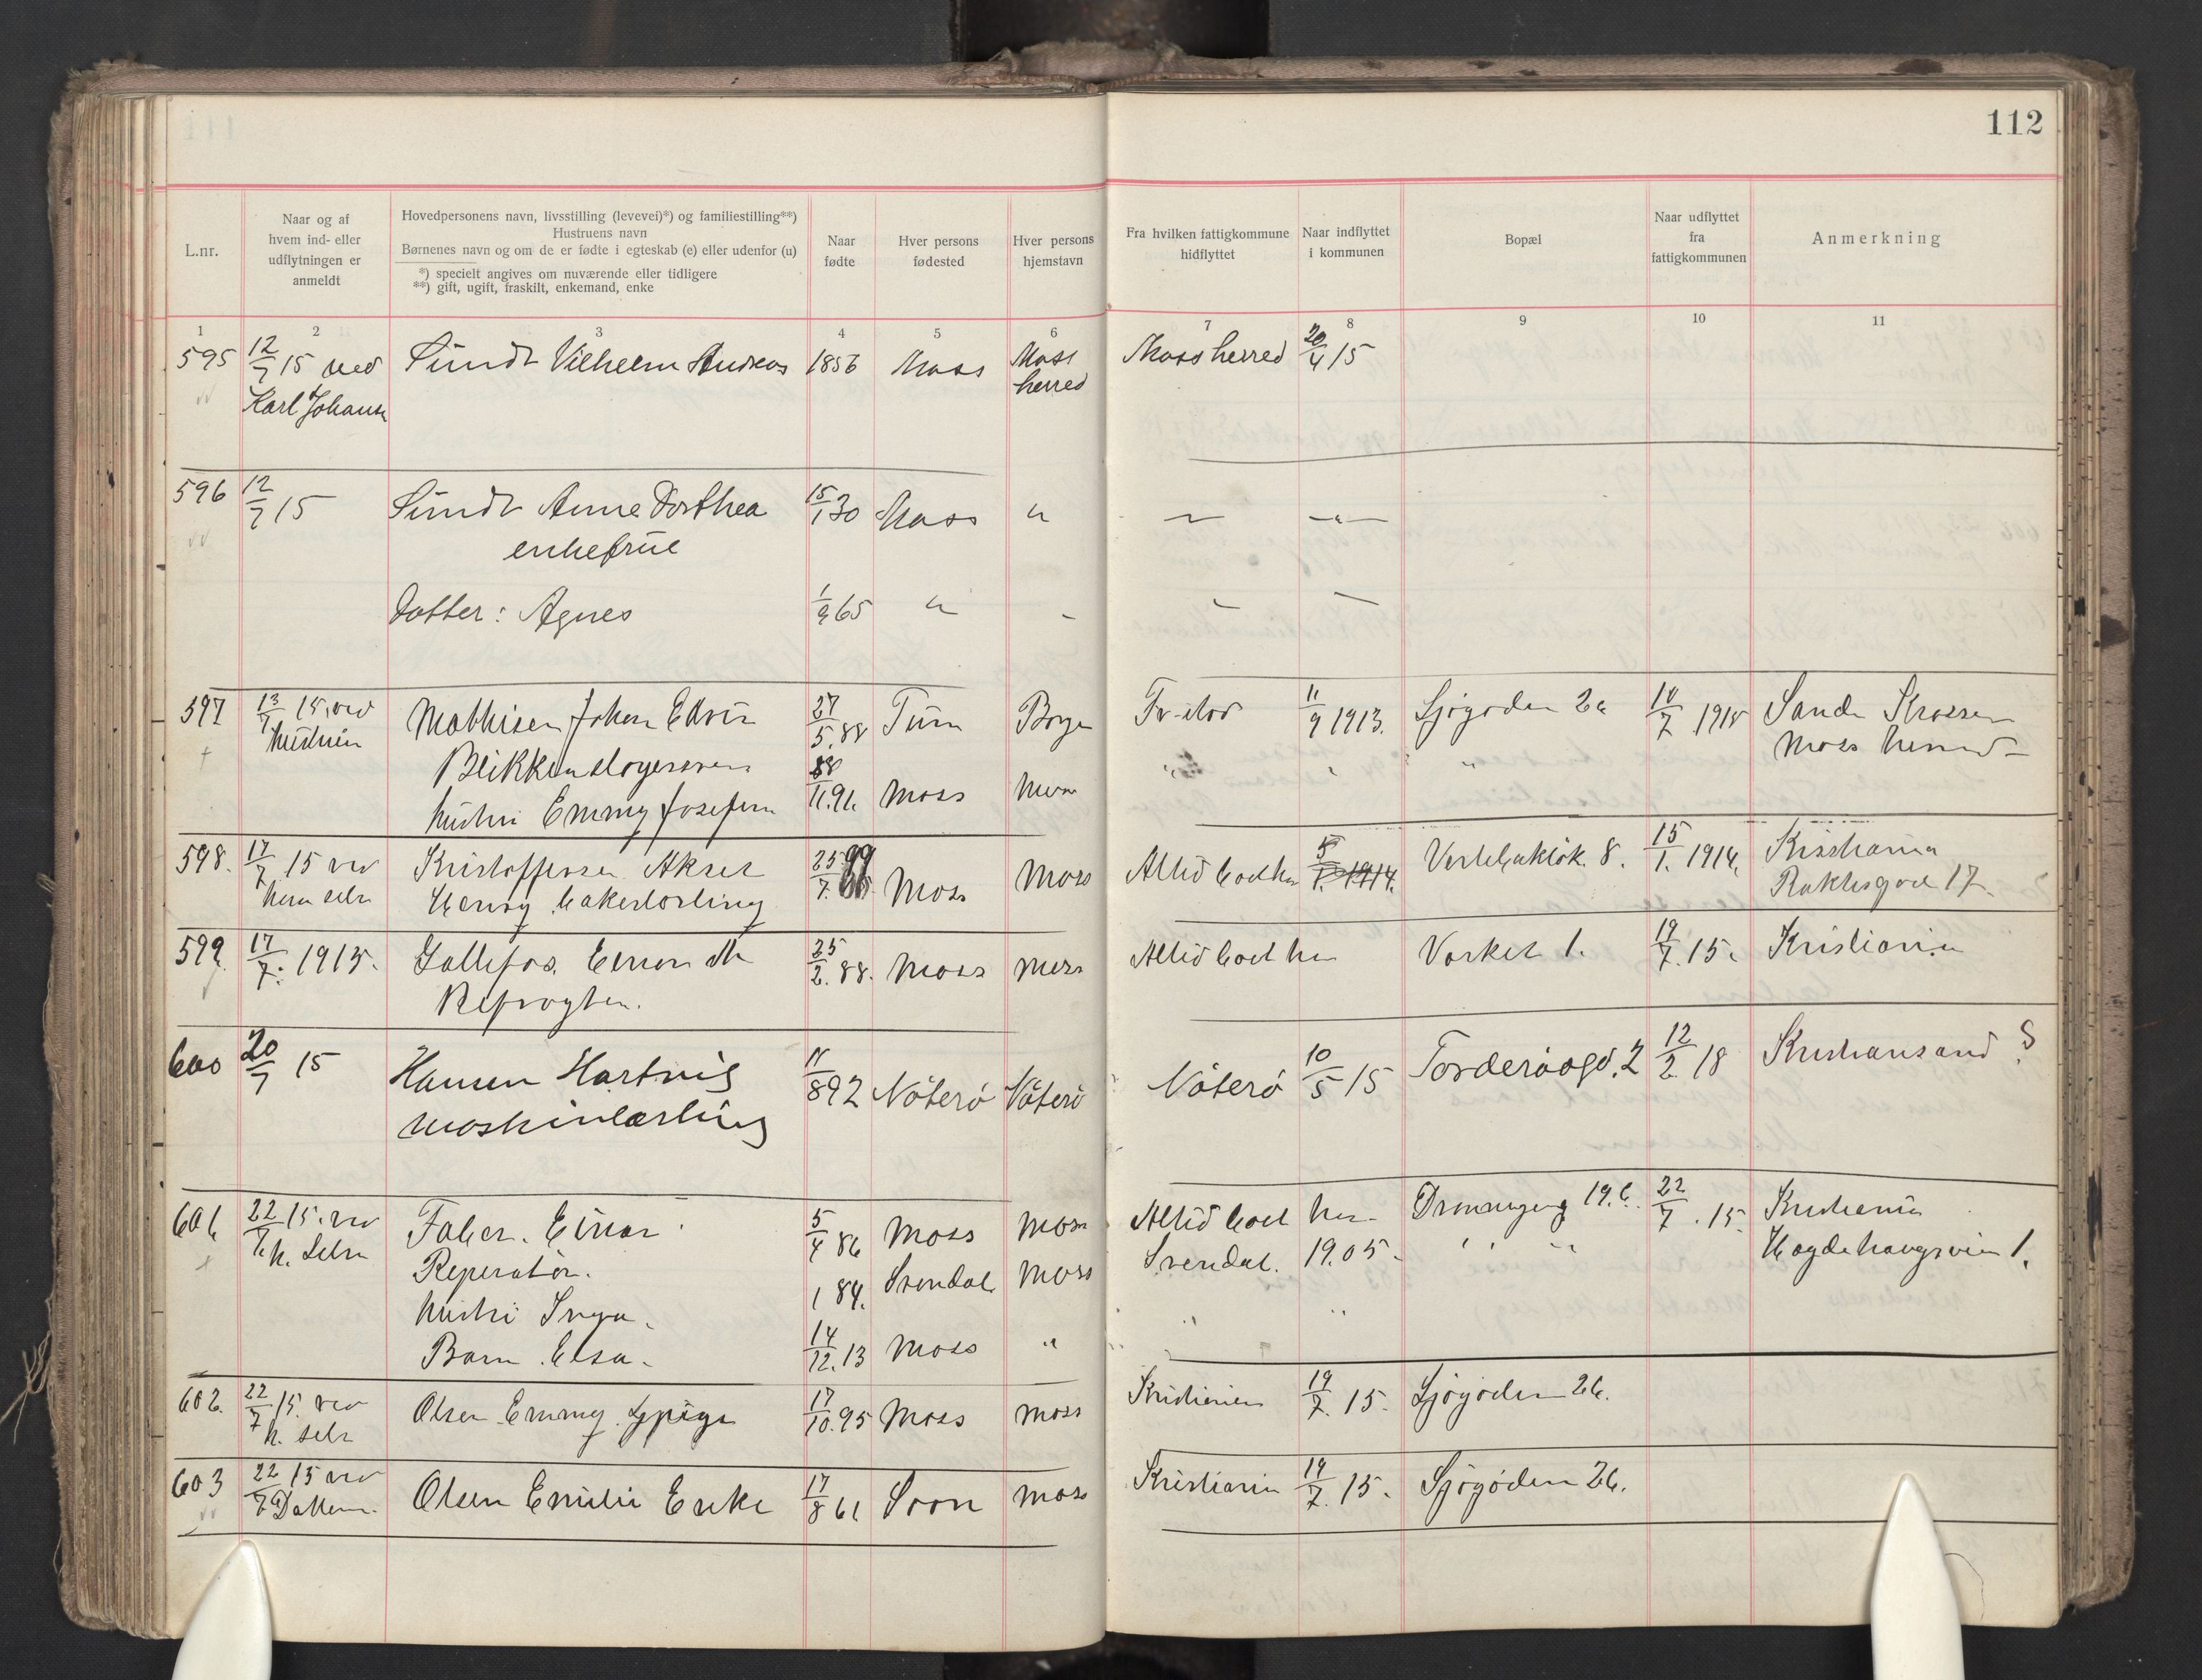 112
L.nr.
Naar og af
hvem ind- eller
udflytningen er
anmeldt
Hovedpersonens navn, livsstilling (levevei)*) og familiestilling**)
Hustruens navn
Børnenes navn og om de er fødte i egteskab (e) eller udenfor (u)
*) specielt angives om nuværende eller tidligere
**) gift, ugift, fraskilt, enkemand, enke
Naar
fødte
Hver persons
fødested
Hver persons
hjemstavn
Fra hvilken fattigkommune
hidflyttet
Naar indflyttet
i kommunen
Bopæl
Naar udflyttet
fra
fattigkommunen
Anmerkning
1 2 3 4 5 6 7 8 9 10 11
595 12/7 15 ved Sundt Vilhelm Andreas 1856 Moss Moss Moss herred 20/4 15
Karl Johansn herred
596 12/7 15 Sundt Anne Dorthea 15/1 30 Moss "
enkefrue
Datter: Agnes 1/9 65 "
597 13/7 15 ved Mathisen Johan Edvin 27/5.88 Tune Borge Fr-stad 11/9 1913. Sjøgaden 2 14/7 1915 Sande Krossern
hustruen Blikkenslagersvend Moss herred
hustru Emmy Josefine 11.91. Moss Moss
598. 17/7 15 ved Kristoffersen Aksel 25/7. 99 Moss Moss Altid boet her 8. 15/1. 1914. Kristiania
ham selv Henry bakerlærling 17
599 17/7. 1915. Einar 25/2.88. Moss Moss Altid boet her Værket 1. 19/7.15. Kristiania
600 20/7 15 Hansen Hartvig 11/8 92 Nøterø Nøterø Nøterø 10/5 15 Torderødgd. 2 12/2 18 Kristiansand S
maskinlærling
601 22/7 15. ved Faber. Einar 5/4 86 Moss Moss Altid boet her Dronningensg 19.b. 22/7. 15. Kristiania
h. selv Reperatør. 1 84. Svendal Moss Svendal. 19.05. Hegdehaugsveien 1.
hustru Inga.
Barn. Elsa. 14/12.13 Moss "
602. 22/7 15. ved Olsen Emmy Spige 17/10.95 Moss Moss Kristiania 19/7. 15. Sjøgaden 26.
h. selv
603 22/7 15 ved Olsen Emilie Enke 17/8 61 Soon Moss Kristiania 19/7. 15. Sjøgaden 26.
Datteren.